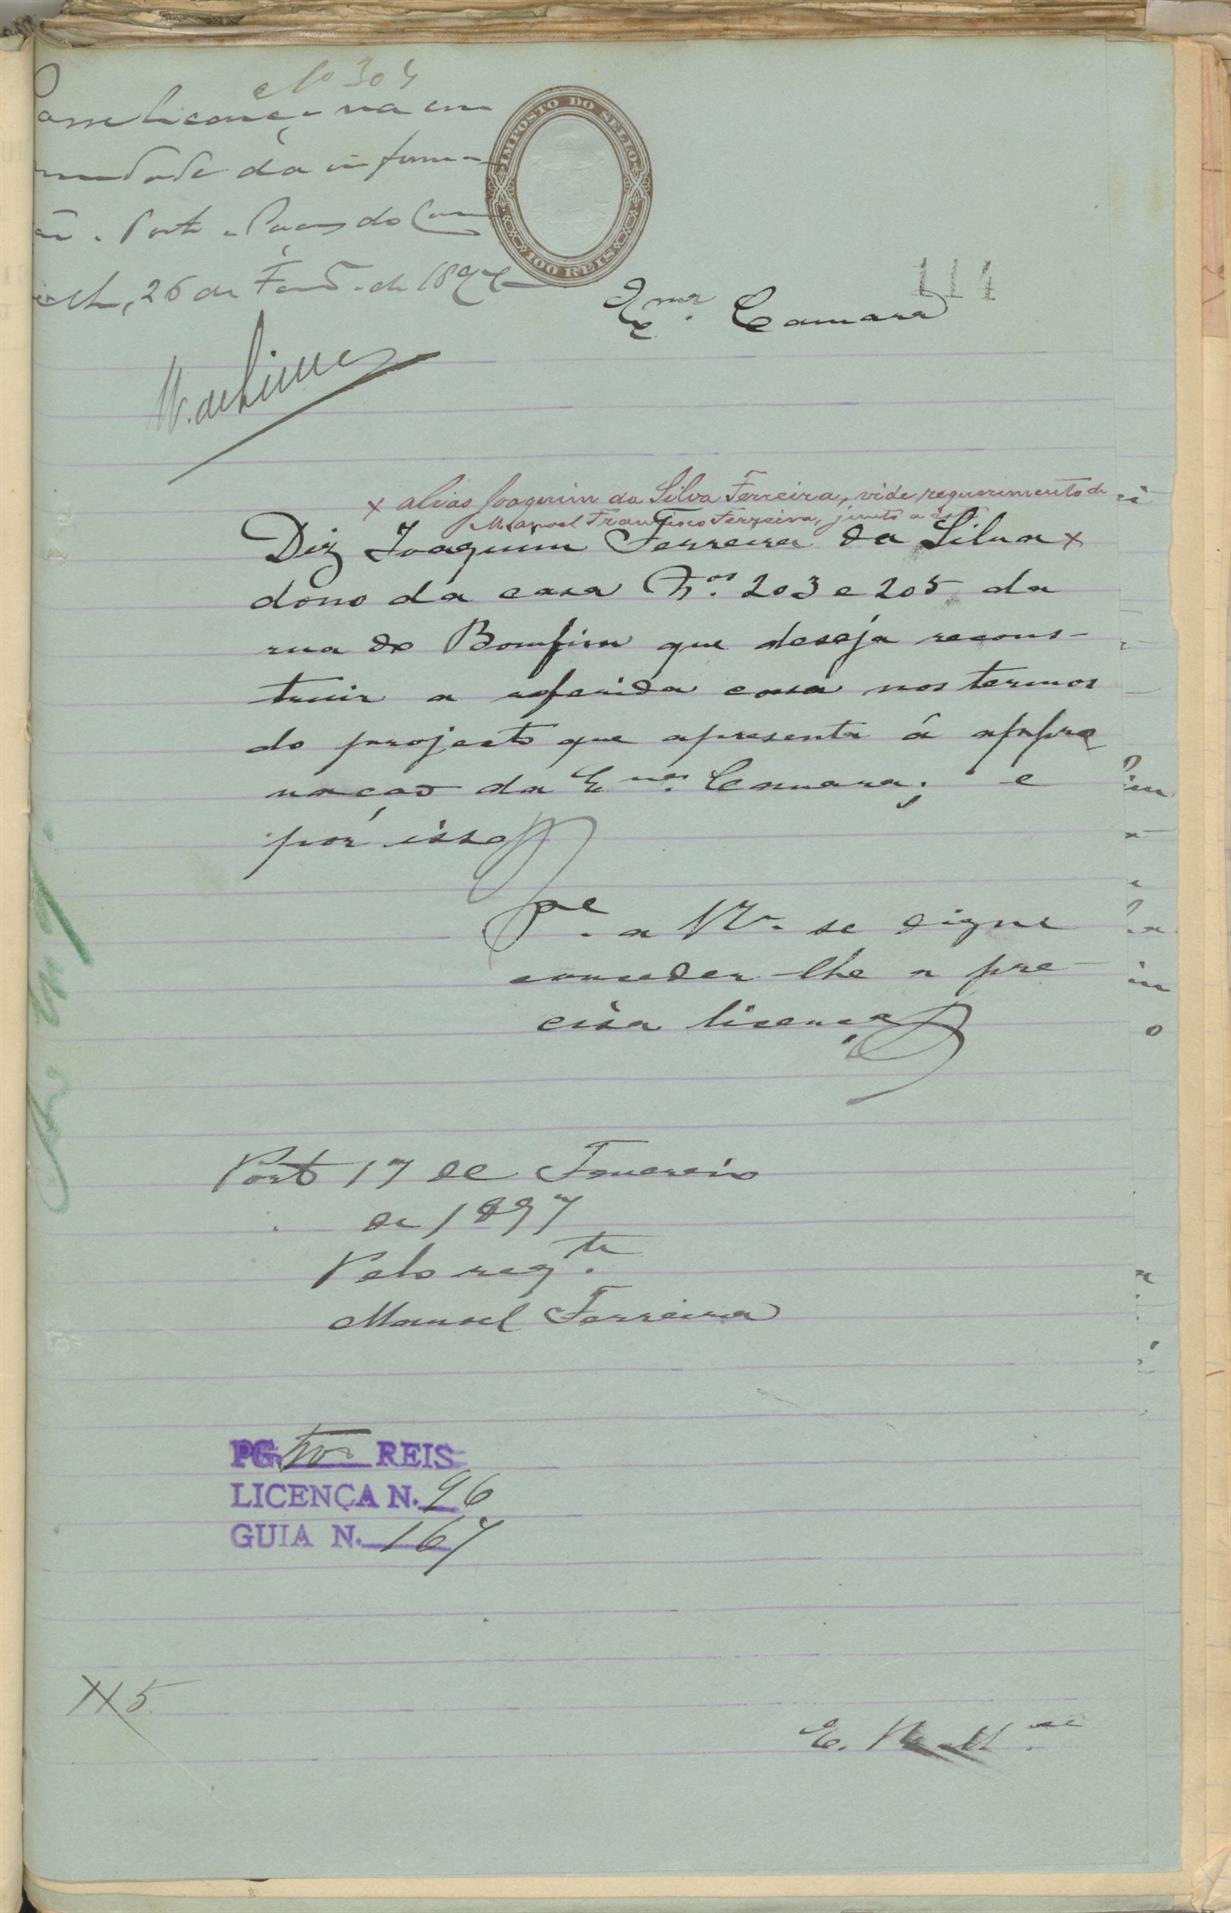 Nº 304
Passe licença na con
formidade da informa-
ção. Porto e Paços do Con
celho, 26 de Fevº. de 1897
IMPOSTO DO SELLO
100 REIS
114
Exmª. Camara
M. de Lima
x alias Joaquim da Silva Ferreira, vide requerimento de
Manoel Francisco Ferreira, junto a este
Diz Joaquim Ferreira da Silva x
dono da casa Nos. 203 e 205 da
rua do Bomfim que deseja recons-
truir a referida casa nos termos
do projecto que apresenta á appro
vação da Exma. Camara; e
por isso
Pe. a Vª. se digne
conceder-lhe a pre-
cisa licença
Porto 17 de Fevereiro
de 1897
Pelo reqte.
Manoel Ferreira
PG. 500 REIS
LICENÇA N. 96
GUIA N. 167
5
E. R. Mce